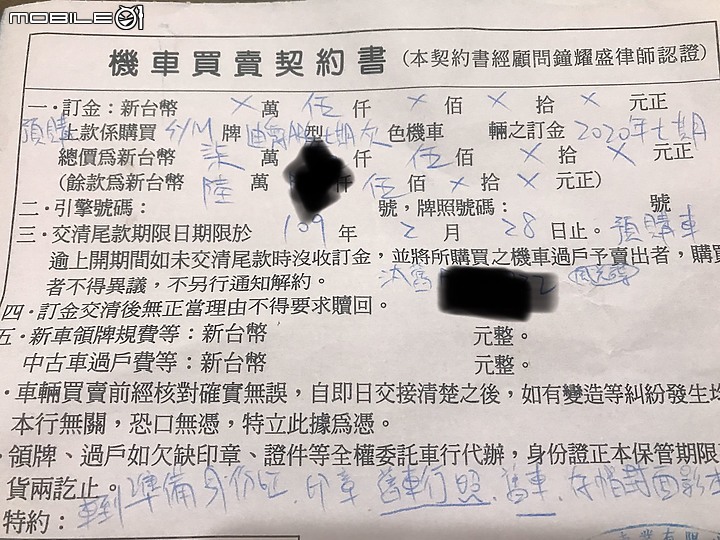 MOBILE01
機車買賣契約書(本契約書經顧問鐘耀盛律師認證)
一·訂金:新台幣 × 萬 伍 仟 × 佰 × 拾 × 元正
預購 上款係購買 SYM 牌 型七期 色機車 輛之訂金 2020年七期
總價爲新台幣 柒 萬 仟 伍 佰 × 拾 × 元正
(餘款爲新台幣 陸 萬 仟 伍 佰 × 拾 × 元正)
二·引擎號碼: 號,牌照號碼: 號
三·交清尾款期限日期限於 109 年 2 月 28 日止。預購車
逾上開期間如未交清尾款時沒收訂金,並將所購買之機車過戶予賣出者,購買
者不得異議,不另行通知解約。 汰舊
四·訂金交清後無正當理由不得要求贖回。
五·新車領牌規費等:新台幣 元整。
中古車過戶費等:新台幣 元整。
·車輛買賣前經核對確實無誤,自即日交接清楚之後,如有變造等糾紛發生均
本行無關,恐口無憑,特立此據爲憑。
·領牌、過戶如欠缺印章、證件等全權委託車行代辦,身份證正本保管期限
貨兩訖止。
特約: 車到準備身份証、印章、舊車行照、舊車、存摺封面影本